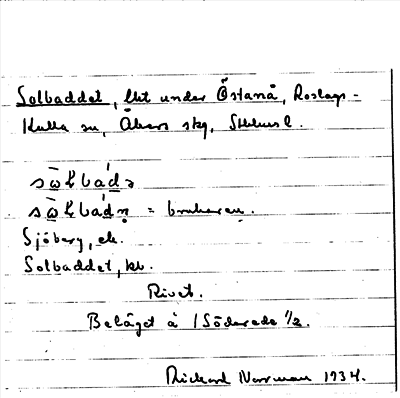 Solbaddet, lht under Östanå, Roslags-
Kulla sn, Åkers skg, Sthlms l.
= brukaren.
Sjöberg, ek.
Solbaddet, kb.
Rivet.
Beläget å 1 Söderede 1/2.
Rickard Norrman 1934.